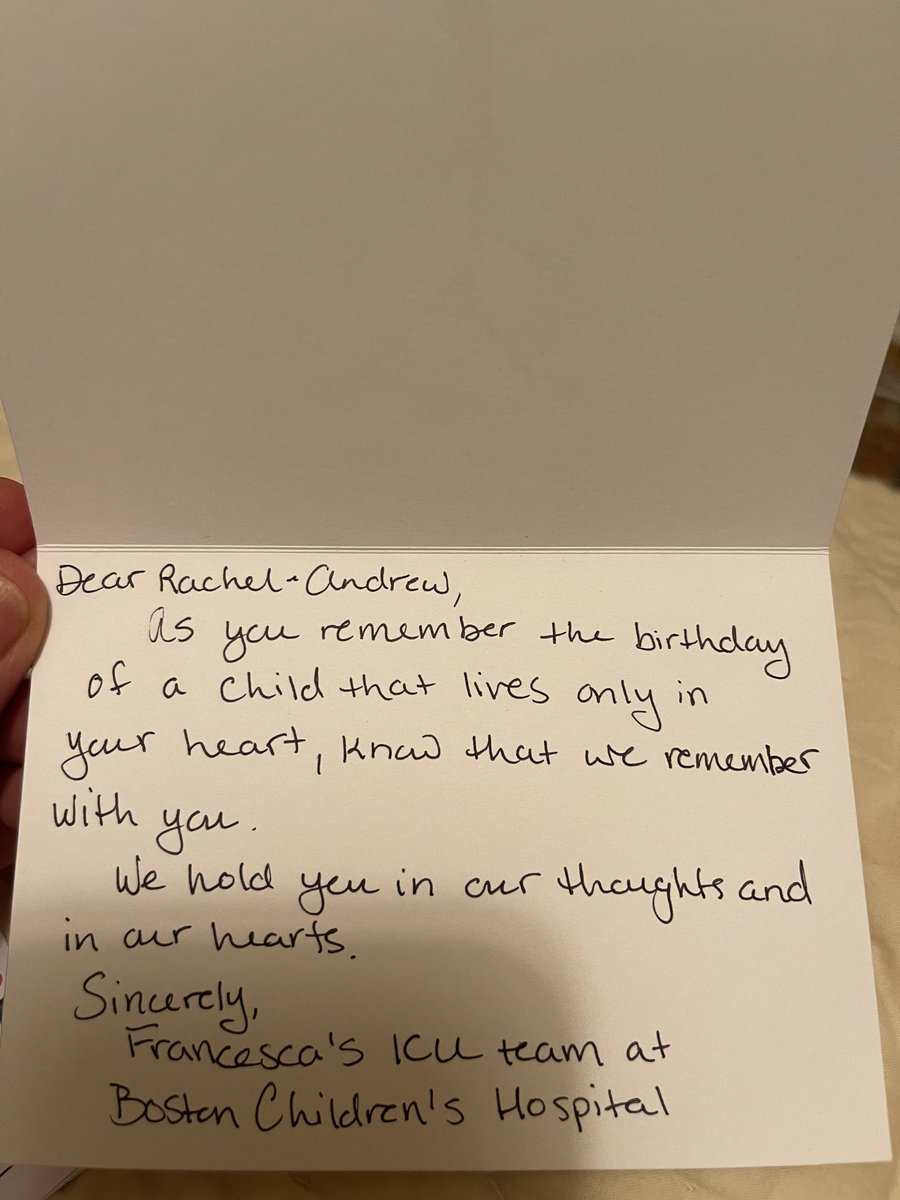 Dear Rachel + Andrew,
As you remember the birthday
of a child that lives only in
your heart, know that we remember
with you.
We hold you in our thoughts and
in our hearts.
Sincerely,
Francesca's ICU team at
Boston Children's Hospital